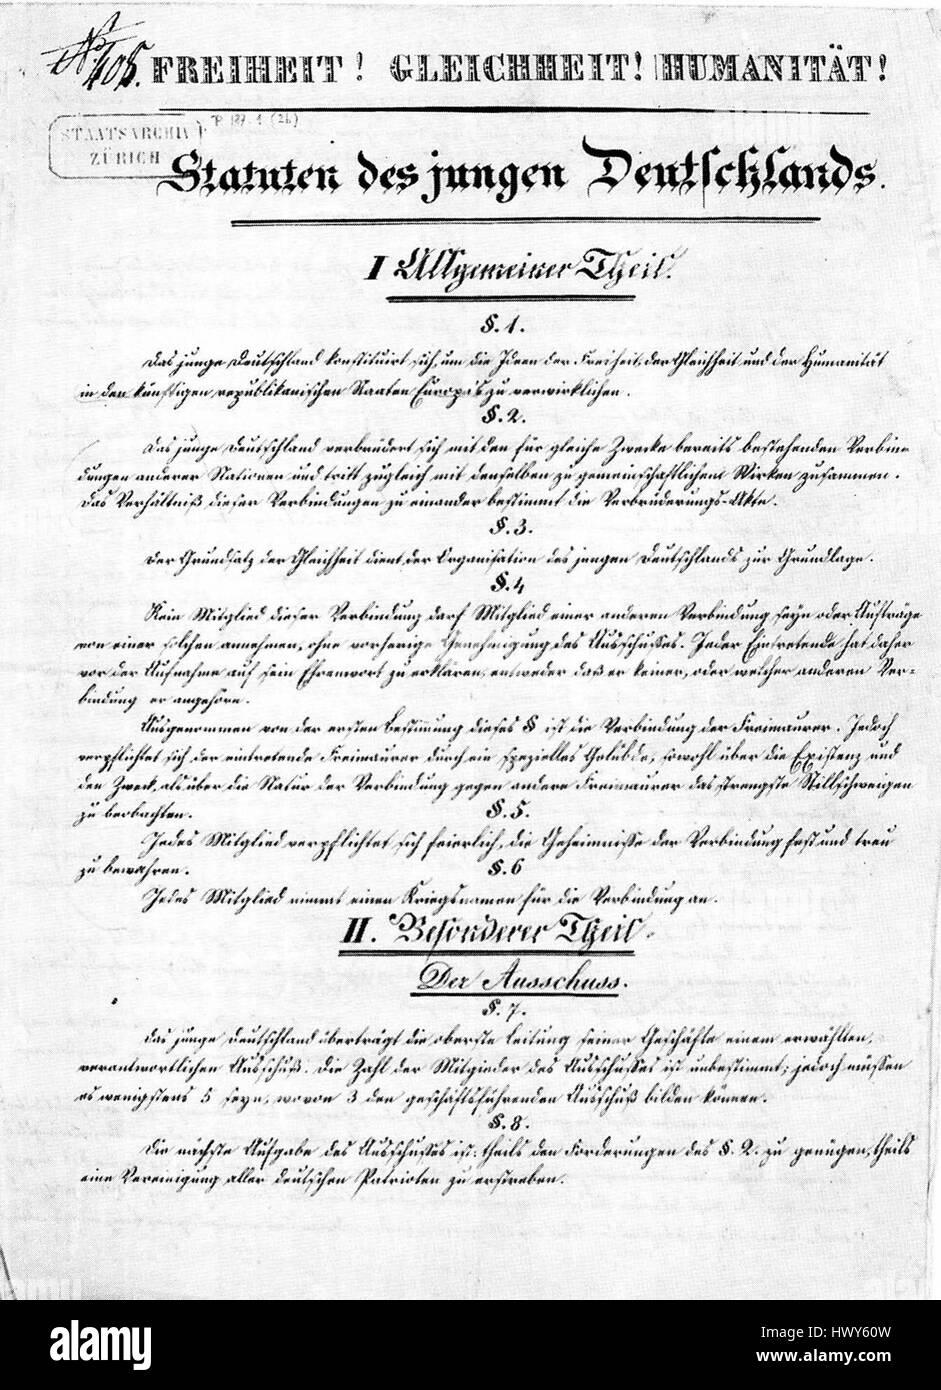 No 408.
FREIHEIT! GLEICHHEIT! HUMANITÄT!
P 187.1 (2b)
STAATSARCHIV
ZÜRICH
Statuten des jungen Deutschlands.
I Allgemeiner Theil.
§. 1.
Das junge Deutschland konstituirt sich, um die Ideen der Freiheit, der Gleichheit und der Humanität
in den künftigen republikanischen Staaten Europas zu verwirklichen.
§. 2.
Das junge Deutschland verbrüdert sich mit den für gleiche Zwecke bereits bestehenden Verbin-
dungen anderer Nationen und tritt zugleich mit denselben zu gemeinschaftlichem Wirken zusammen.
Das Verhältniß dieser Verbindungen zu einander bestimmt die Verbrüderungs-Akte.
§. 3.
Der Grundsatz der Gleichheit dient der Organisation des jungen Deutschlands zur Grundlage.
§. 4
Kein Mitglied dieser Verbindung darf Mitglied einer anderen Verbindung seyn oder Aufträge
von einer solchen annehmen, ohne vorherige Genehmigung des Ausschußes. Jeder Eintretende hat daher
vor der Aufnahme auf sein Ehrenwort zu erklären, entweder daß er keiner, oder welcher anderen Ver-
bindung er angehöre.
Ausgenommen von der ersten Bestimmung dieses § ist die Verbindung der Freimaurer. Jedoch
verpflichtet sich der eintretende Freimaurer durch ein spezielles Gelübde, sowohl über die Existenz und
den Zweck, als über die Natur der Verbindung gegen andere Freimaurer das strengste Stillschweigen
zu beobachten.
§. 5.
Jedes Mitglied verpflichtet sich feierlich, die Geheimnisse der Verbindung fest und treu
zu bewahren.
§. 6
Jedes Mitglied nimmt einen Kriegsnamen für die Verbindung an.
II. Besonderer Theil.
Der Ausschuss.
§. 7.
Das junge Deutschland überträgt die oberste Leitung seiner Geschäfte einem erwählten,
verantwortlichen Ausschuß. Die Zahl der Mitglieder des Ausschußes ist unbestimmt; jedoch müssen
es wenigstens 5 seyn, wovon 3 den geschäftsführenden Ausschuß bilden können.
§. 8.
Die nächste Aufgabe des Ausschußes ist: theils den Forderungen des §. 2. zu genügen, theils
eine Vereinigung aller deutschen Patrioten zu erstreben.
alamy
Image ID: HWY60W
www.alamy.com